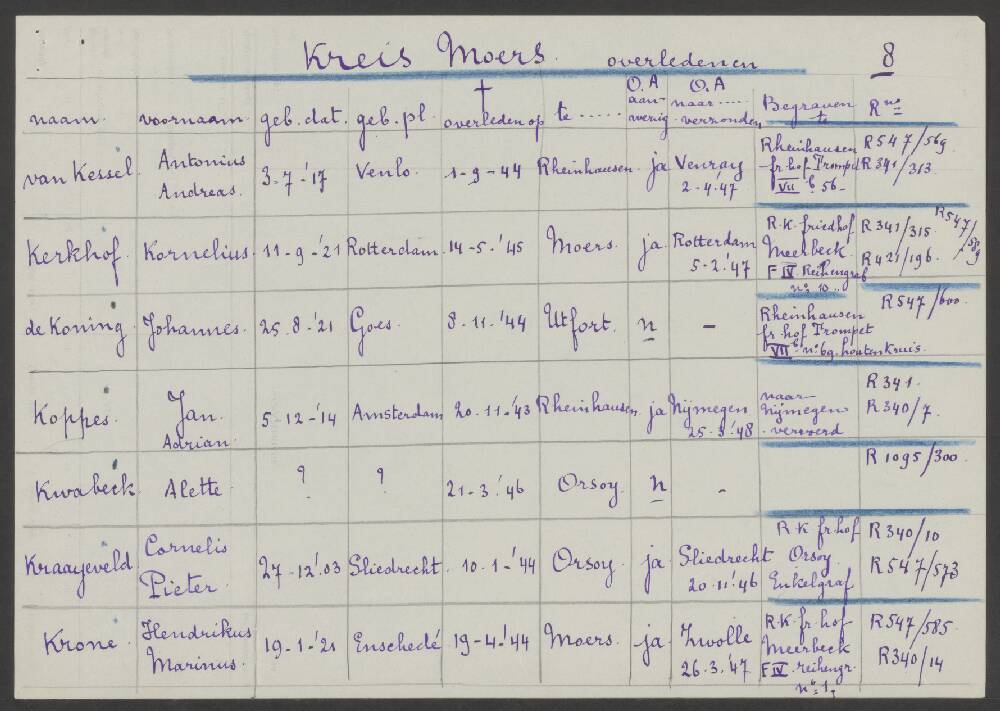 Kreis Moers. overledenen 8
naam. voornaam. geb. dat. geb. pl. † overleden op te ...... O.A aan-wezig. O.A. naar ..... verzonden Begraven te R ns
van Kessel. Antonius Andreas. 3-7-'17 Venlo. 1-9-44 Rheinhausen. ja Venray 2-4-'47 Rheinhausen fr. hof Trompet VII b 56- R547/569 R341/313
Kerkhof. Kornelius. 11-9-'21 Rotterdam. 14-5-'45 Moers. ja Rotterdam 5-2-'47 R.K. friedhof Meerbeck F IV Reihengraf no 10.. R341/315 R421/196. R547/589
de Koning. Johannes. 25-8-'21 Goes. 8-11-'44 Utfort. n - Rheinhausen fr. hof Trompet VII b no 69. houten Kruis. R547/600
Koppes. Jan Adrian. 5-12-'14 Amsterdam 20-11-'43 Rheinhausen. ja Nijmegen 25-3-'48 naar Nijmegen vervoerd R341. R340/7.
Kwabeck. Alette ? ? 21-3-'46 Orsoy. n - R1095/300.
Kraayeveld. Cornelis Pieter 27-12-'03 Sliedrecht. 10-1-'44 Orsoy. ja Sliedrecht 20-11-'46 R.K. fr. hof Orsoy Enkelgraf R340/10 R547/573
Krone. Hendrikus Marinus. 19-1-'21 Enschedé 19-4-'44 Moers. ja Zwolle 26-3-'47 R.K. fr. hof Meerbeck F IV. reihengr. no 1. R547/585 R340/14